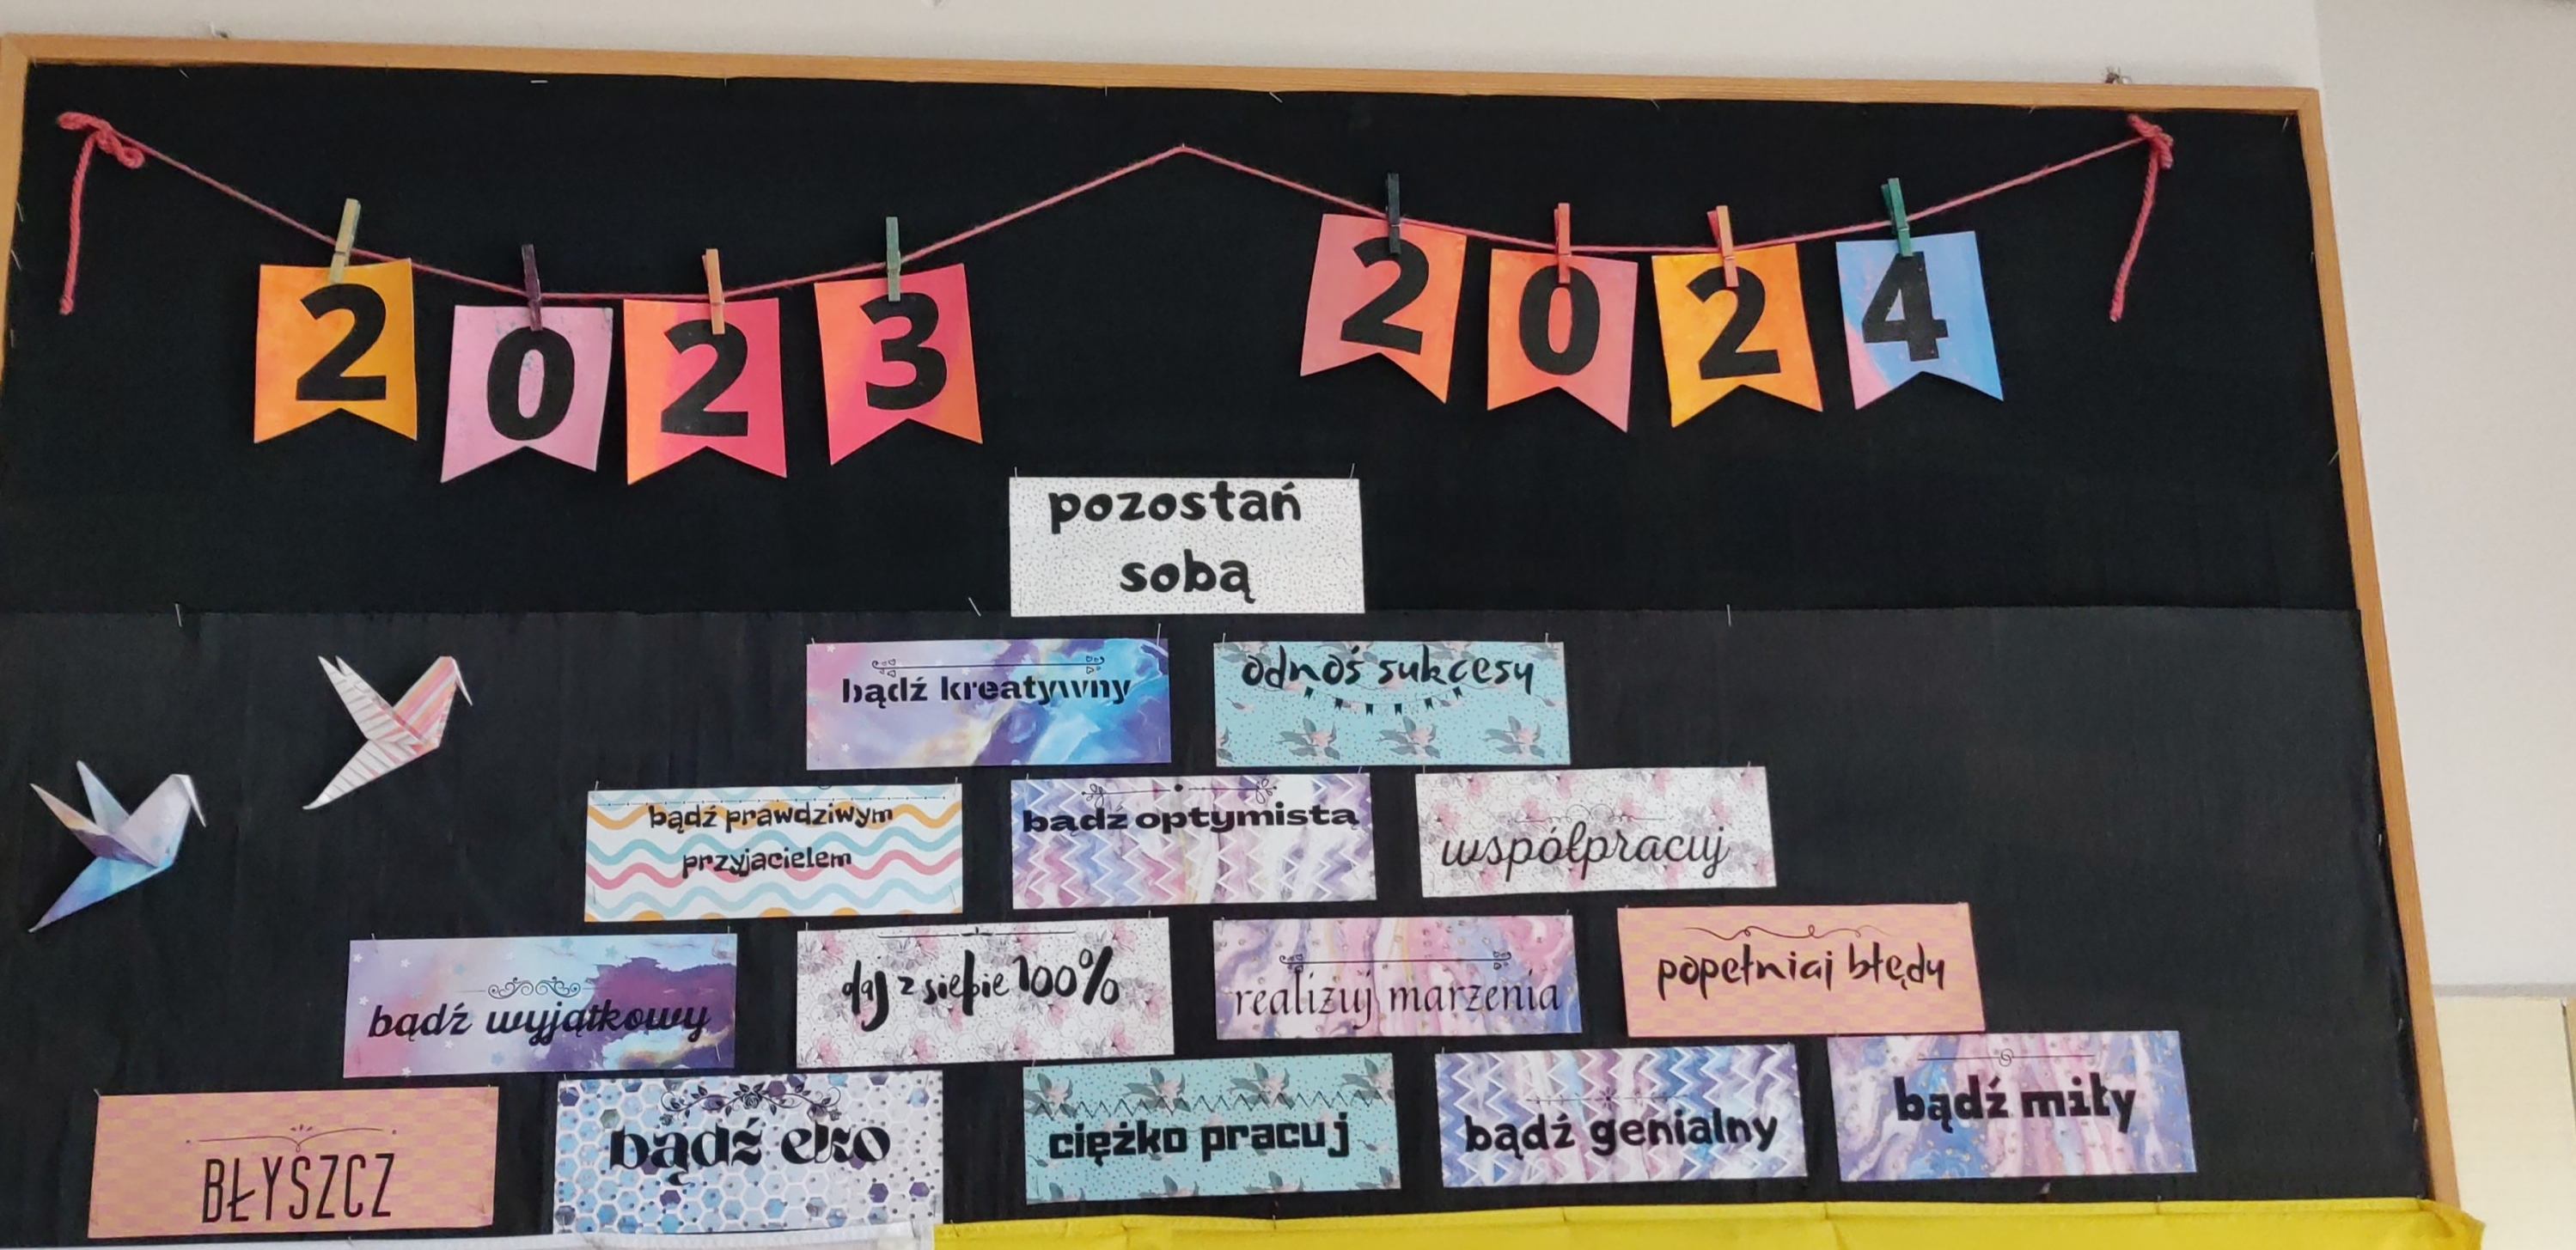 2023 2024
pozostań
sobą
bądź kreatywny
odnoś sukcesy
bądź prawdziwym
przyjacielem
bądź optymistą
współpracuj
bądź wyjątkowy
daj z siebie 100%
realizuj marzenia
popełniaj błędy
BŁYSZCZ
bądź eko
ciężko pracuj
bądź genialny
bądź miły